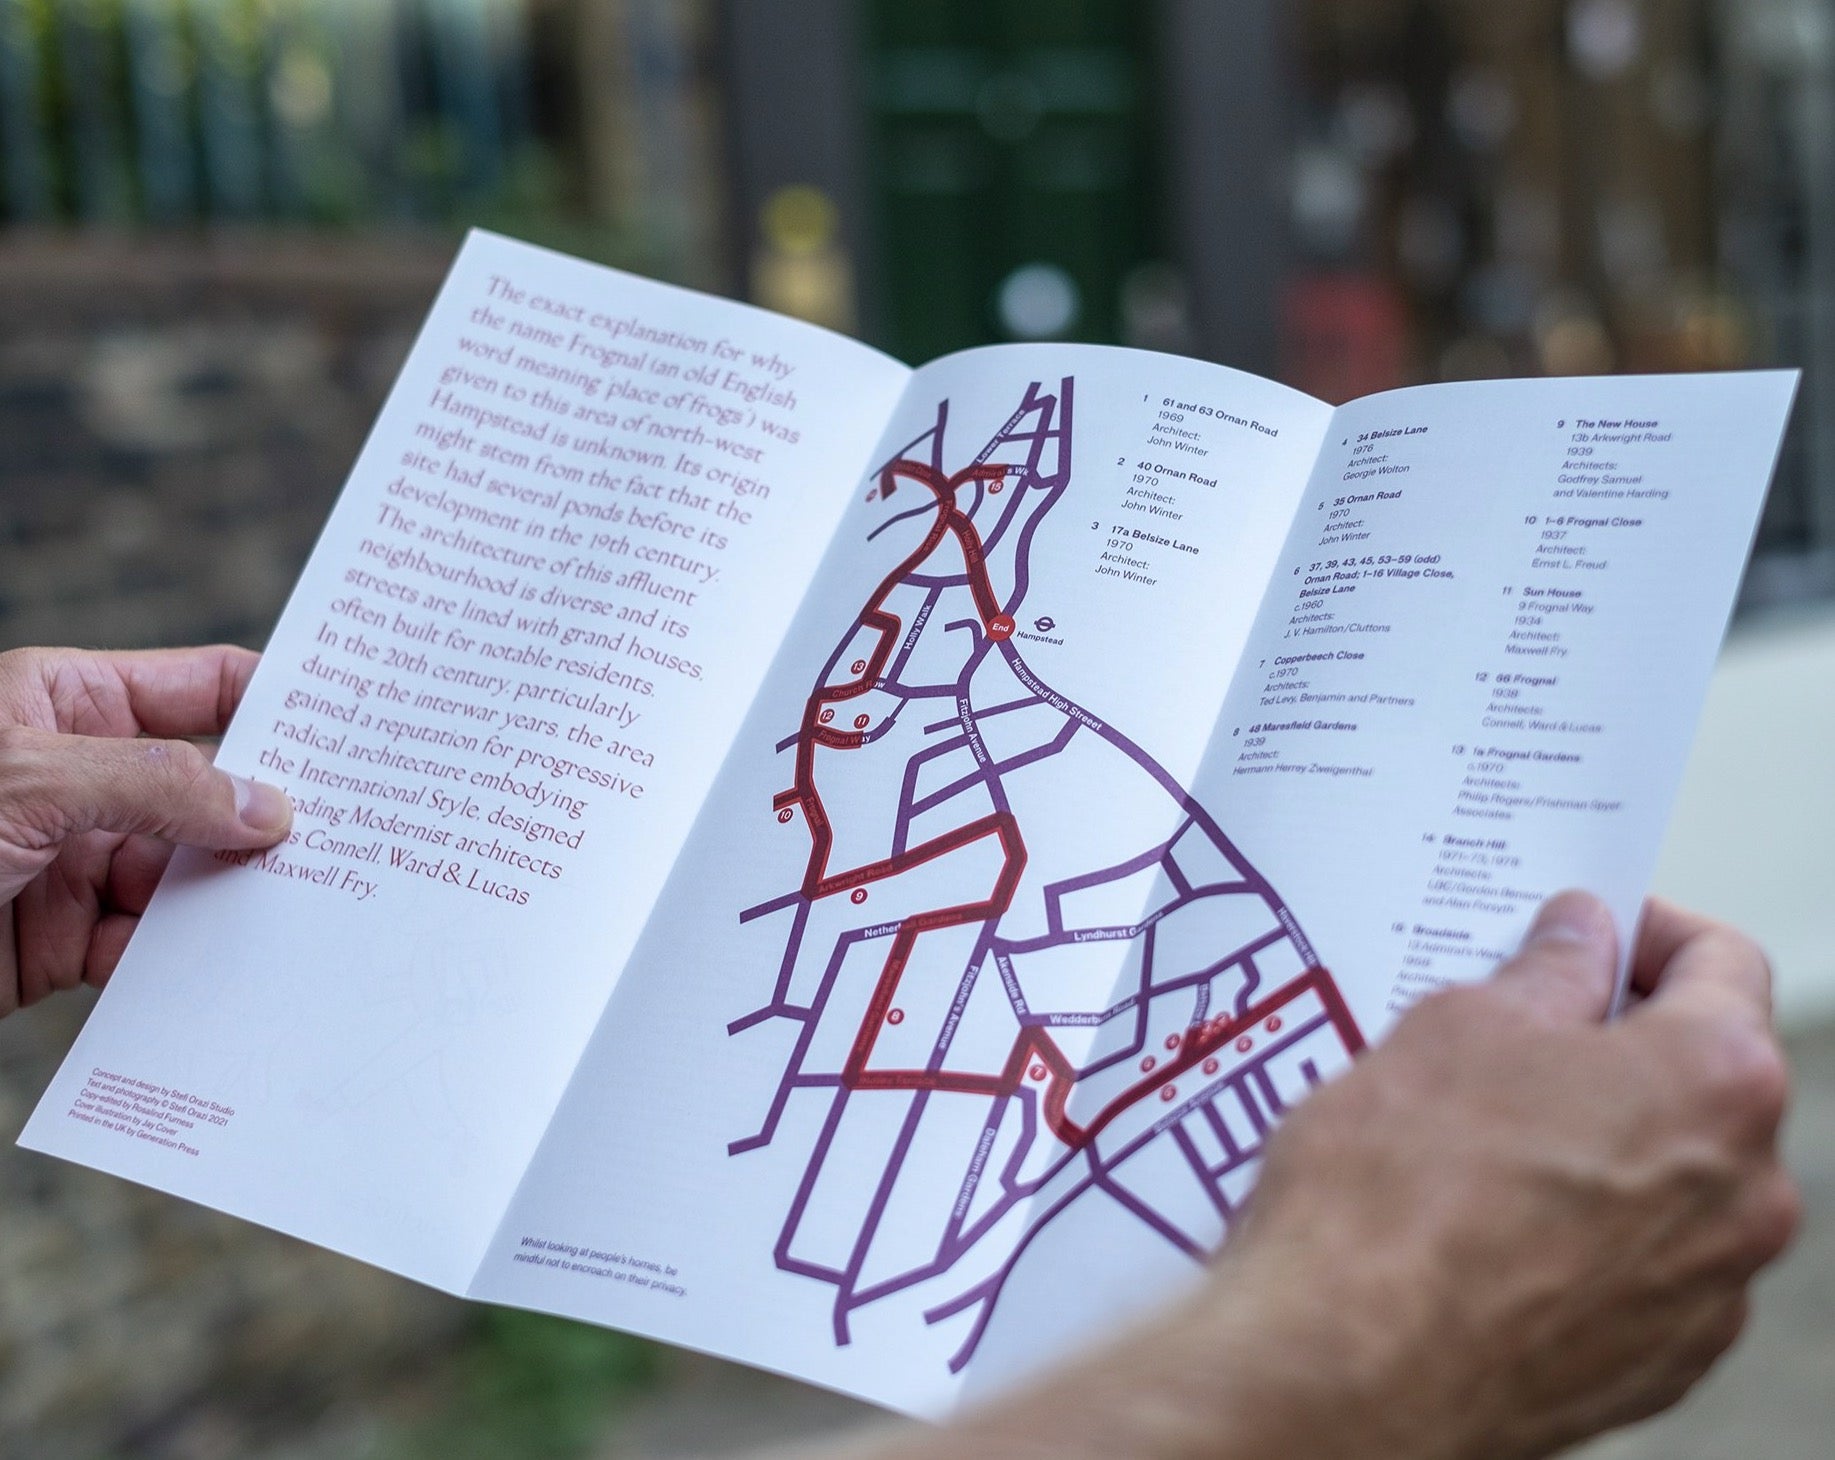 The exact explanation for why
the name Frognal (an old English
word meaning 'place of frogs') was
given to this area of north-west
Hampstead is unknown. Its origin
might stem from the fact that the
site had several ponds before its
development in the 19th century.
The architecture of this affluent
neighbourhood is diverse and its
streets are lined with grand houses,
often built for notable residents.
In the 20th century, particularly
during the interwar years, the area
gained a reputation for progressive
radical architecture embodying
the International Style, designed
leading Modernist architects
as Connell, Ward & Lucas
and Maxwell Fry.
Concept and design by Stefi Orazi Studio
Text and photography © Stefi Orazi 2021
Copy-edited by Rosalind Furness
Cover illustration by Jay Cover
Printed in the UK by Generation Press
Lower Terrace
Admiral's Wk
15
Holly Hill
End
Hampstead
Holly Walk
13
Church Row
12
11
Frognal Way
Hampstead High Streeet
Fitzjohn Avenue
10
Frognal
Arkwright Road
9
Gardens
Lyndhurst Gardens
Haverstock Hill
Akenside Rd
Fitzjohn's Avenue
Wedderburn Road
8
7
Daleham Gardens
Whilst looking at people's homes, be
mindful not to encroach on their privacy.
1 61 and 63 Ornan Road
1969
Architect:
John Winter
2 40 Ornan Road
1970
Architect:
John Winter
3 17a Belsize Lane
1970
Architect:
John Winter
4 34 Belsize Lane
1976
Architect:
Georgie Wolton
5 35 Ornan Road
1970
Architect:
John Winter
6 37, 39, 43, 45, 53–59 (odd)
Ornan Road; 1–16 Village Close,
Belsize Lane
c.1960
Architects:
J. V. Hamilton/Cluttons
7 Copperbeech Close
c.1970
Architects:
Ted Levy, Benjamin and Partners
8 48 Maresfield Gardens
1939
Architect:
Hermann Herrey Zweigenthal
9 The New House
13b Arkwright Road
1939
Architects:
Godfrey Samuel
and Valentine Harding
10 1–6 Frognal Close
1937
Architect:
Ernst L. Freud
11 Sun House
9 Frognal Way
1934
Architect:
Maxwell Fry
12 66 Frognal
1938
Architects:
Connell, Ward & Lucas
13 1a Frognal Gardens
c.1970
Architects:
Philip Rogers/Frishman Spyer
Associates
14 Branch Hill
1971–73, 1978
Architects:
LBC/Gordon Benson
and Alan Forsyth
15 Broadside
13 Admiral's Walk